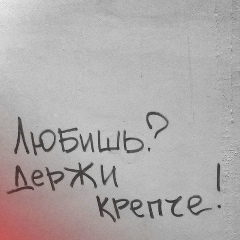 Любишь?
Держи
крепче!